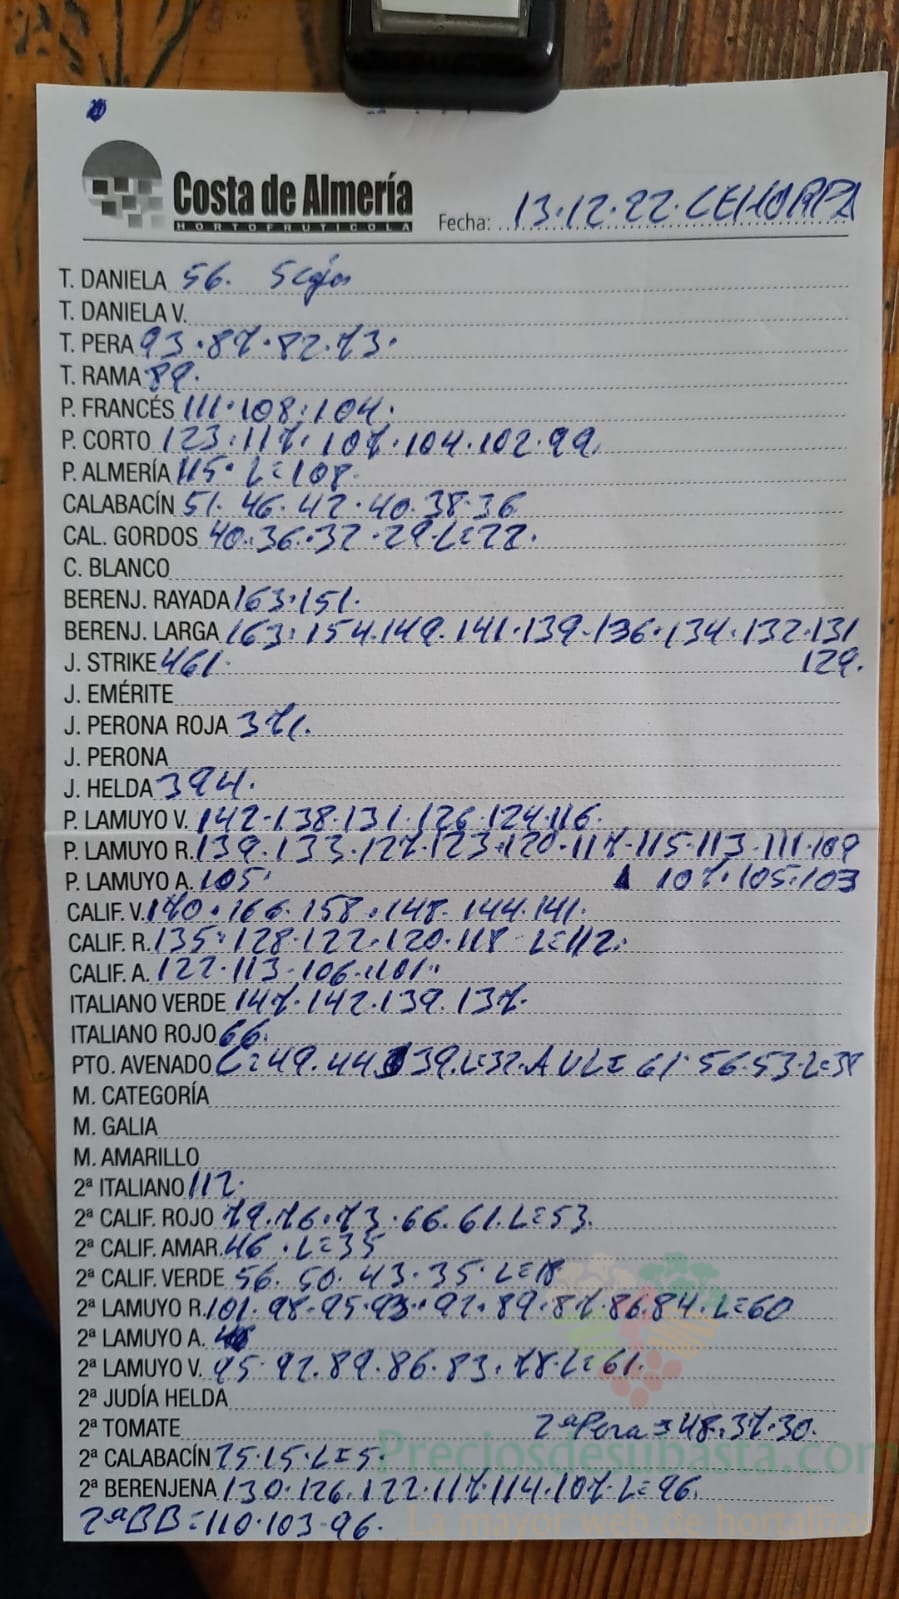 Costa de Almería
HORTOFRUTICOLA
Fecha: 13.12.22. CEHORPA
T. DANIELA 56. 5 cajas
T. DANIELA V.
T. PERA 93.87.82.73.
T. RAMA 89.
P. FRANCÉS 111.108.104.
P. CORTO 123.117.107.104.102.99.
P. ALMERÍA 115. L=108.
CALABACÍN 51.46.42.40.38.36
CAL. GORDOS 40.36.32.29.L=22.
C. BLANCO
BERENJ. RAYADA 163.151.
BERENJ. LARGA 163.154.149.141.139.136.134.132.131
129.
J. STRIKE 461.
J. EMÉRITE
J. PERONA ROJA 371.
J. PERONA
J. HELDA 394.
P. LAMUYO V. 142.138.131.126.124.116.
P. LAMUYO R. 139.133.127.123.120.117.115.113.111.109
107.105.103
P. LAMUYO A. 105.
CALIF. V. 170.166.158.148.144.141.
CALIF. R. 135.128.122.120.118 L=112.
CALIF. A. 122.113.106.101.
ITALIANO VERDE 147.142.139.137.
ITALIANO ROJO 66.
PTO. AVENADO L=49.44.39.L=32.AVL=61.56.53.L=38
M. CATEGORÍA
M. GALIA
M. AMARILLO
2ª ITALIANO 112.
2ª CALIF. ROJO 79.76.73.66.61.L=53.
2ª CALIF. AMAR. 46.L=35
2ª CALIF. VERDE 56.50.43.35.L=18
2ª LAMUYO R. 101.98.95.93.92.89.87.86.84.L=60
2ª LAMUYO A.
2ª LAMUYO V. 95.92.89.86.83.78.L=61.
2ª JUDÍA HELDA
2ª TOMATE 2ª Pera=48.37.30.
2ª CALABACÍN 25.15.L=5.
2ª BERENJENA 130.126.122.117.114.107.L=96.
2ªBB=110.103.96.
Preciosdesubasta.com
La mayor web de hortaliza